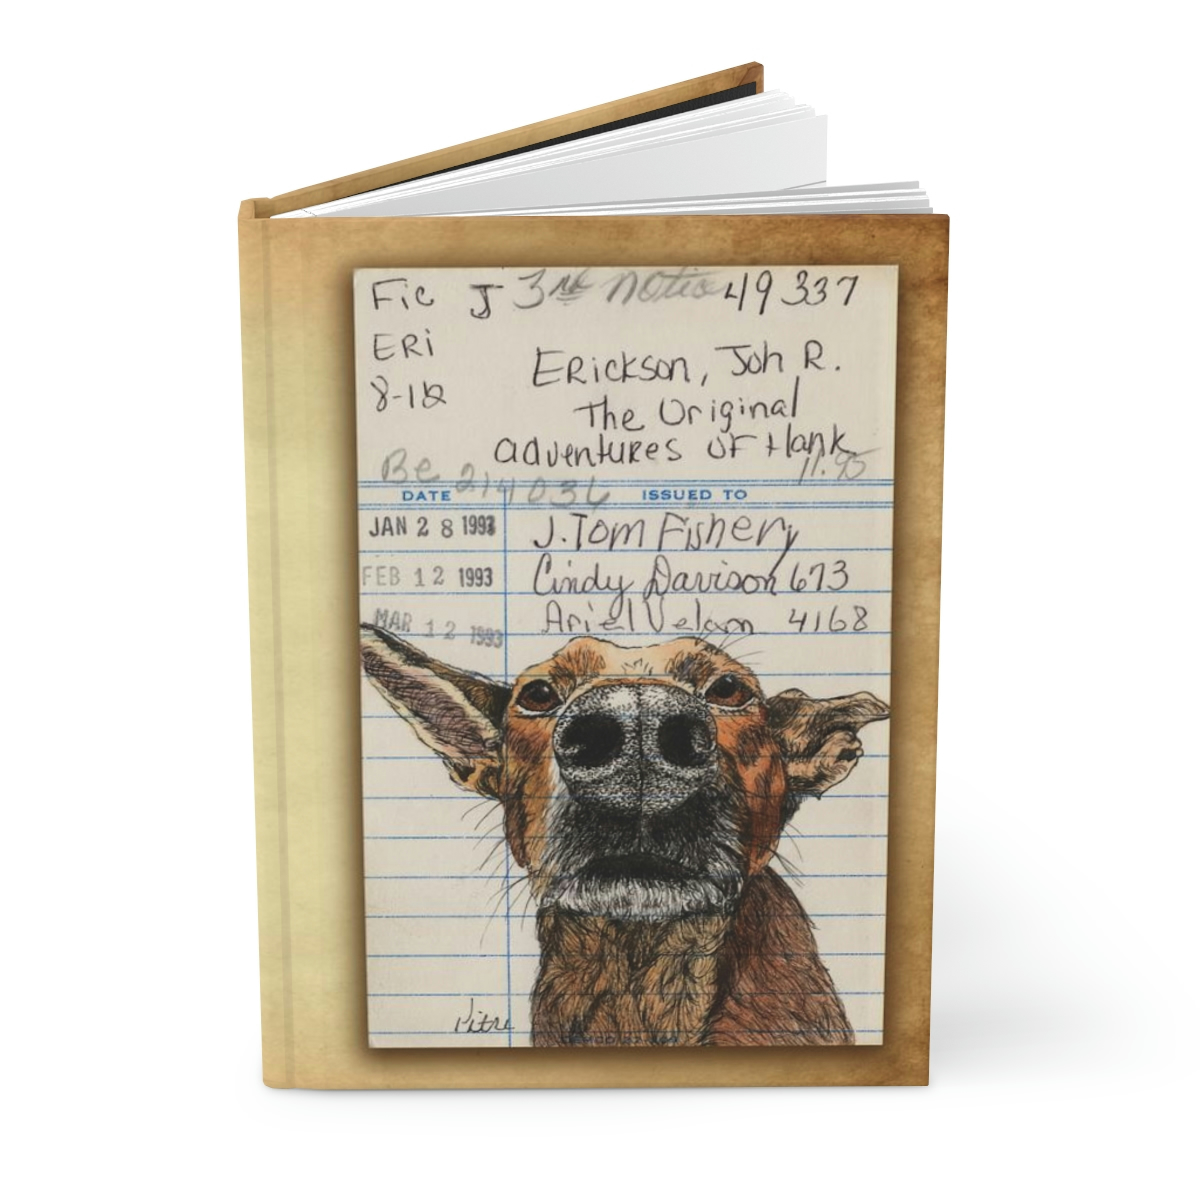 Fic J 3rd notice 49337
ERi
8-12
Erickson, Joh R.
The Original
adventures of Hank
11.95
Be 214036
DATE ISSUED TO
JAN 28 1993 J. Tom Fishery
FEB 12 1993 Cindy Davison 673
MAR 12 1993 Ariel Velam 4168
Pitre